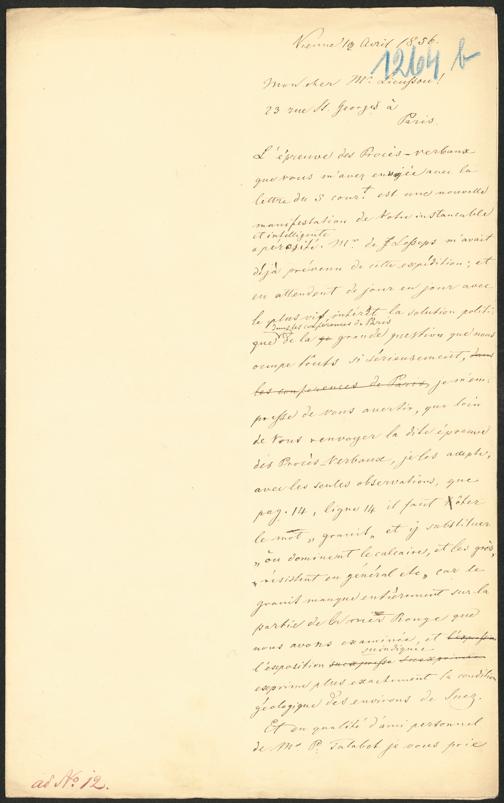 Vienne 12 Avril 1856.
1264 b
Mon cher Mr. Lieussou!
23 rue St. Georges à
Paris.
L'épreuve des Procès-verbaux
que vous m'avez envoyée avec la
lettre du 5 cour.t est une nouvelle
manifestation de Votre instancable
et intelligente
opérosité. Mr. de Lesseps m'avait
déjà prévenu de cette expédition; et
en attendant de jour en jour avec
le plus vif intérêt la solution politi-
dans les conférences de Paris
que de la grande question que nous
occupe touts si sérieusement, dans
les conférences de Paris, je m'em-
presse de vous avertir, que loin
de Vous renvoyer la dite épreuve
des Procès-Verbaux, je les adopte,
avec les seules observations, que
pag. 14, ligne 14 il faut ôter
le mot „granit„ et y substituer
„ou dominent le calcaire, et les grès,
„résistent en général etc„ car le
granit manque entièrement sur la
partie de la mer Rouge que
nous avons examinée, et
susindiquée
l'exposition
exprime plus exactement la condition
géologique des environs de Suez.
Et en qualité d'ami personnel
de Mr P. Talabot je vous prie
ad No. 12.